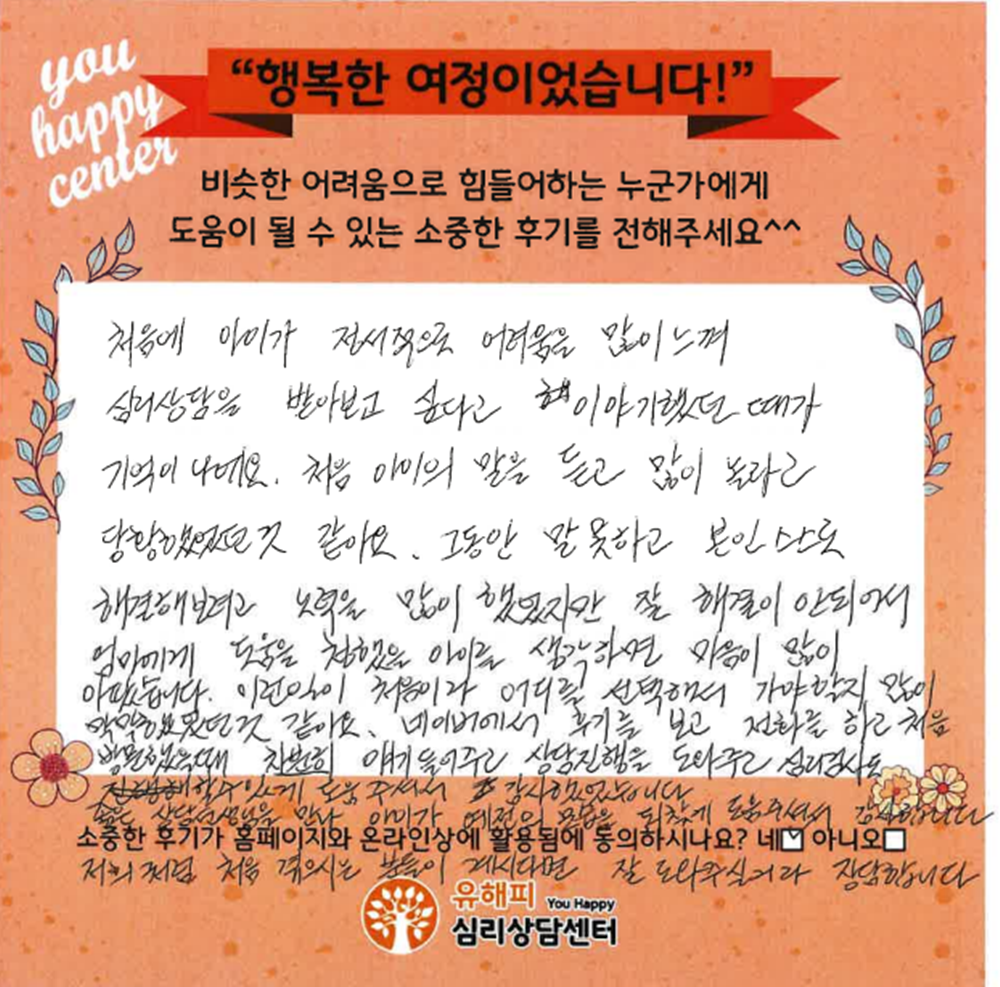 you
happy
center
“행복한 여정이었습니다!”
비슷한 어려움으로 힘들어하는 누군가에게
도움이 될 수 있는 소중한 후기를 전해주세요^^
처음에 아이가 정서적으로 어려움을 많이 느껴
심리상담을 받아보고 싶다고 이야기했던 때가
기억이 나네요. 처음 아이의 말을 듣고 많이 놀라고
당황했었던것 같아요. 그동안 말 못하고 본인 스스로
해결해보려고 노력을 많이 했었지만 잘 해결이 안되어서
엄마에게 도움을 청했을 아이를 생각하면 마음이 많이
아팠습니다. 이런일이 처음이라 어디를 선택해서 가야할지 많이
막막했었던것 같아요. 네이버에서 후기를 보고 전화를 하고 처음
방문했을때 차분히 얘기 들어주고 상담진행을 도와주고 심리검사도
할수있게 도움 주셔서 감사했었습니다
좋은 상담선생님을 만나 아이가 예전의 모습을 되찾게 도움주셔서 감사합니다
소중한 후기가 홈페이지와 온라인상에 활용됨에 동의하시나요? 네☑ 아니오☐
저희처럼 처음 겪으시는 분들이 계시다면 잘 도와주실거라 장담합니다
유해피 You Happy
심리상담센터